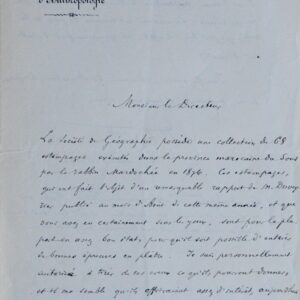 d'Anthropologie
Monsieur le Directeur
La Société de Géographie possède une collection de 68
estampages exécutés dans la province marocaine du Sous
par le rabbin Mardochée en 1874. Ces estampages,
qui ont fait l'objet d'un remarquable rapport de M. Duvey
rier publié au mois d'Août de cette même année, et que
vous avez certainement sous les yeux, sont pour la plu
part en assez bon état, pour qu'il soit possible d'en tirer
de bonnes épreuves en plâtre. Je suis personnellement
autorisé à tirer de ces creux ce qu'ils peuvent donner,
et il me semble qu'ils offriraient assez d'intérêt, aujourd'hui